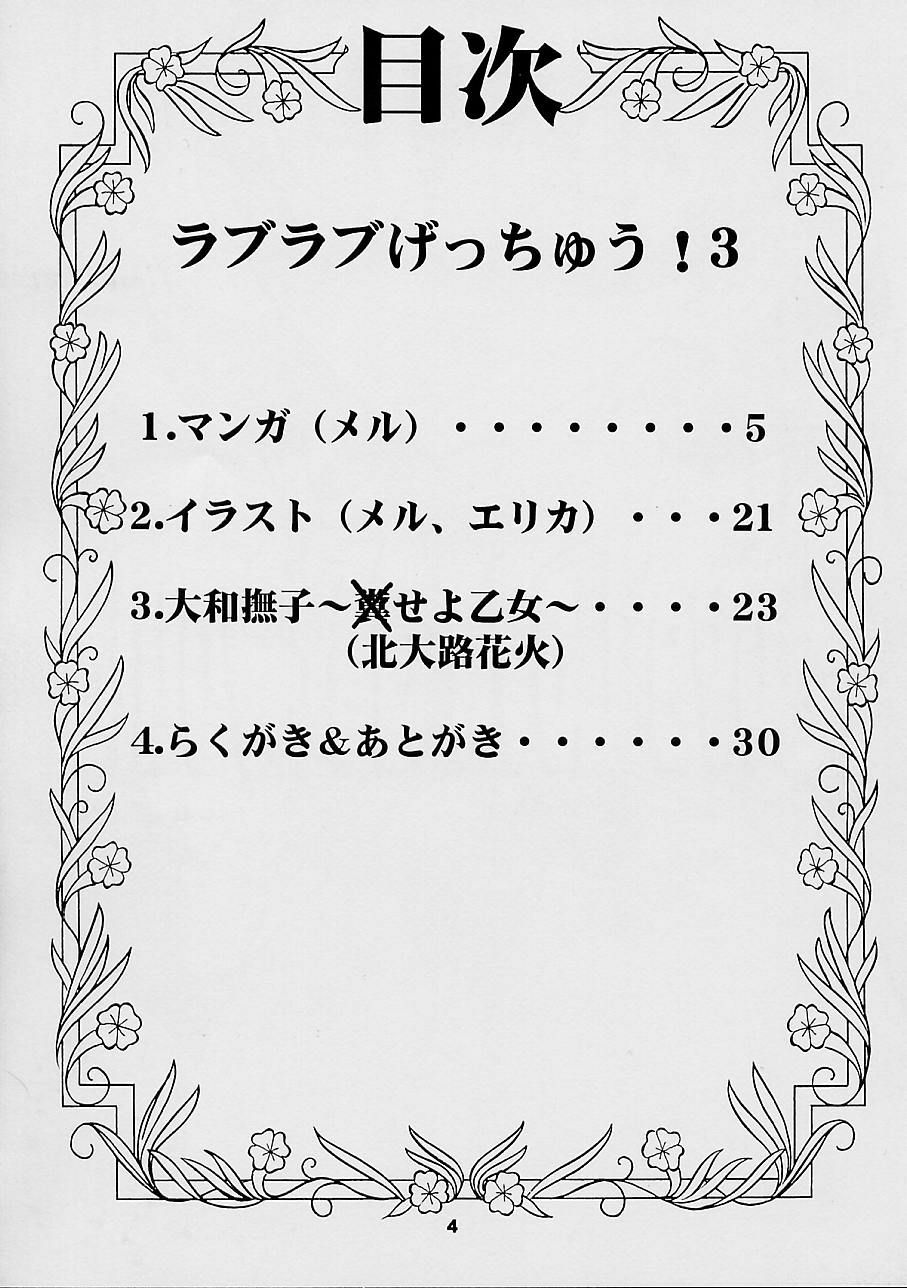 目次
ラブラブげっちゅう！3
1.マンガ（メル）・・・・・・・・・5
2.イラスト（メル、エリカ）・・・21
3.大和撫子～糞せよ乙女～・・・・23
（北大路花火）
4.らくがき＆あとがき・・・・・・30
4